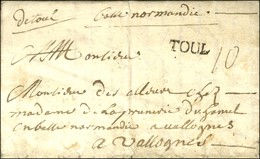 de toul basse normandie
A Monsieur
TOUL 10
Monsieur des alleurs chez
madame de la prunerie duhamel
en basse normandie a vallognes
a vallognes